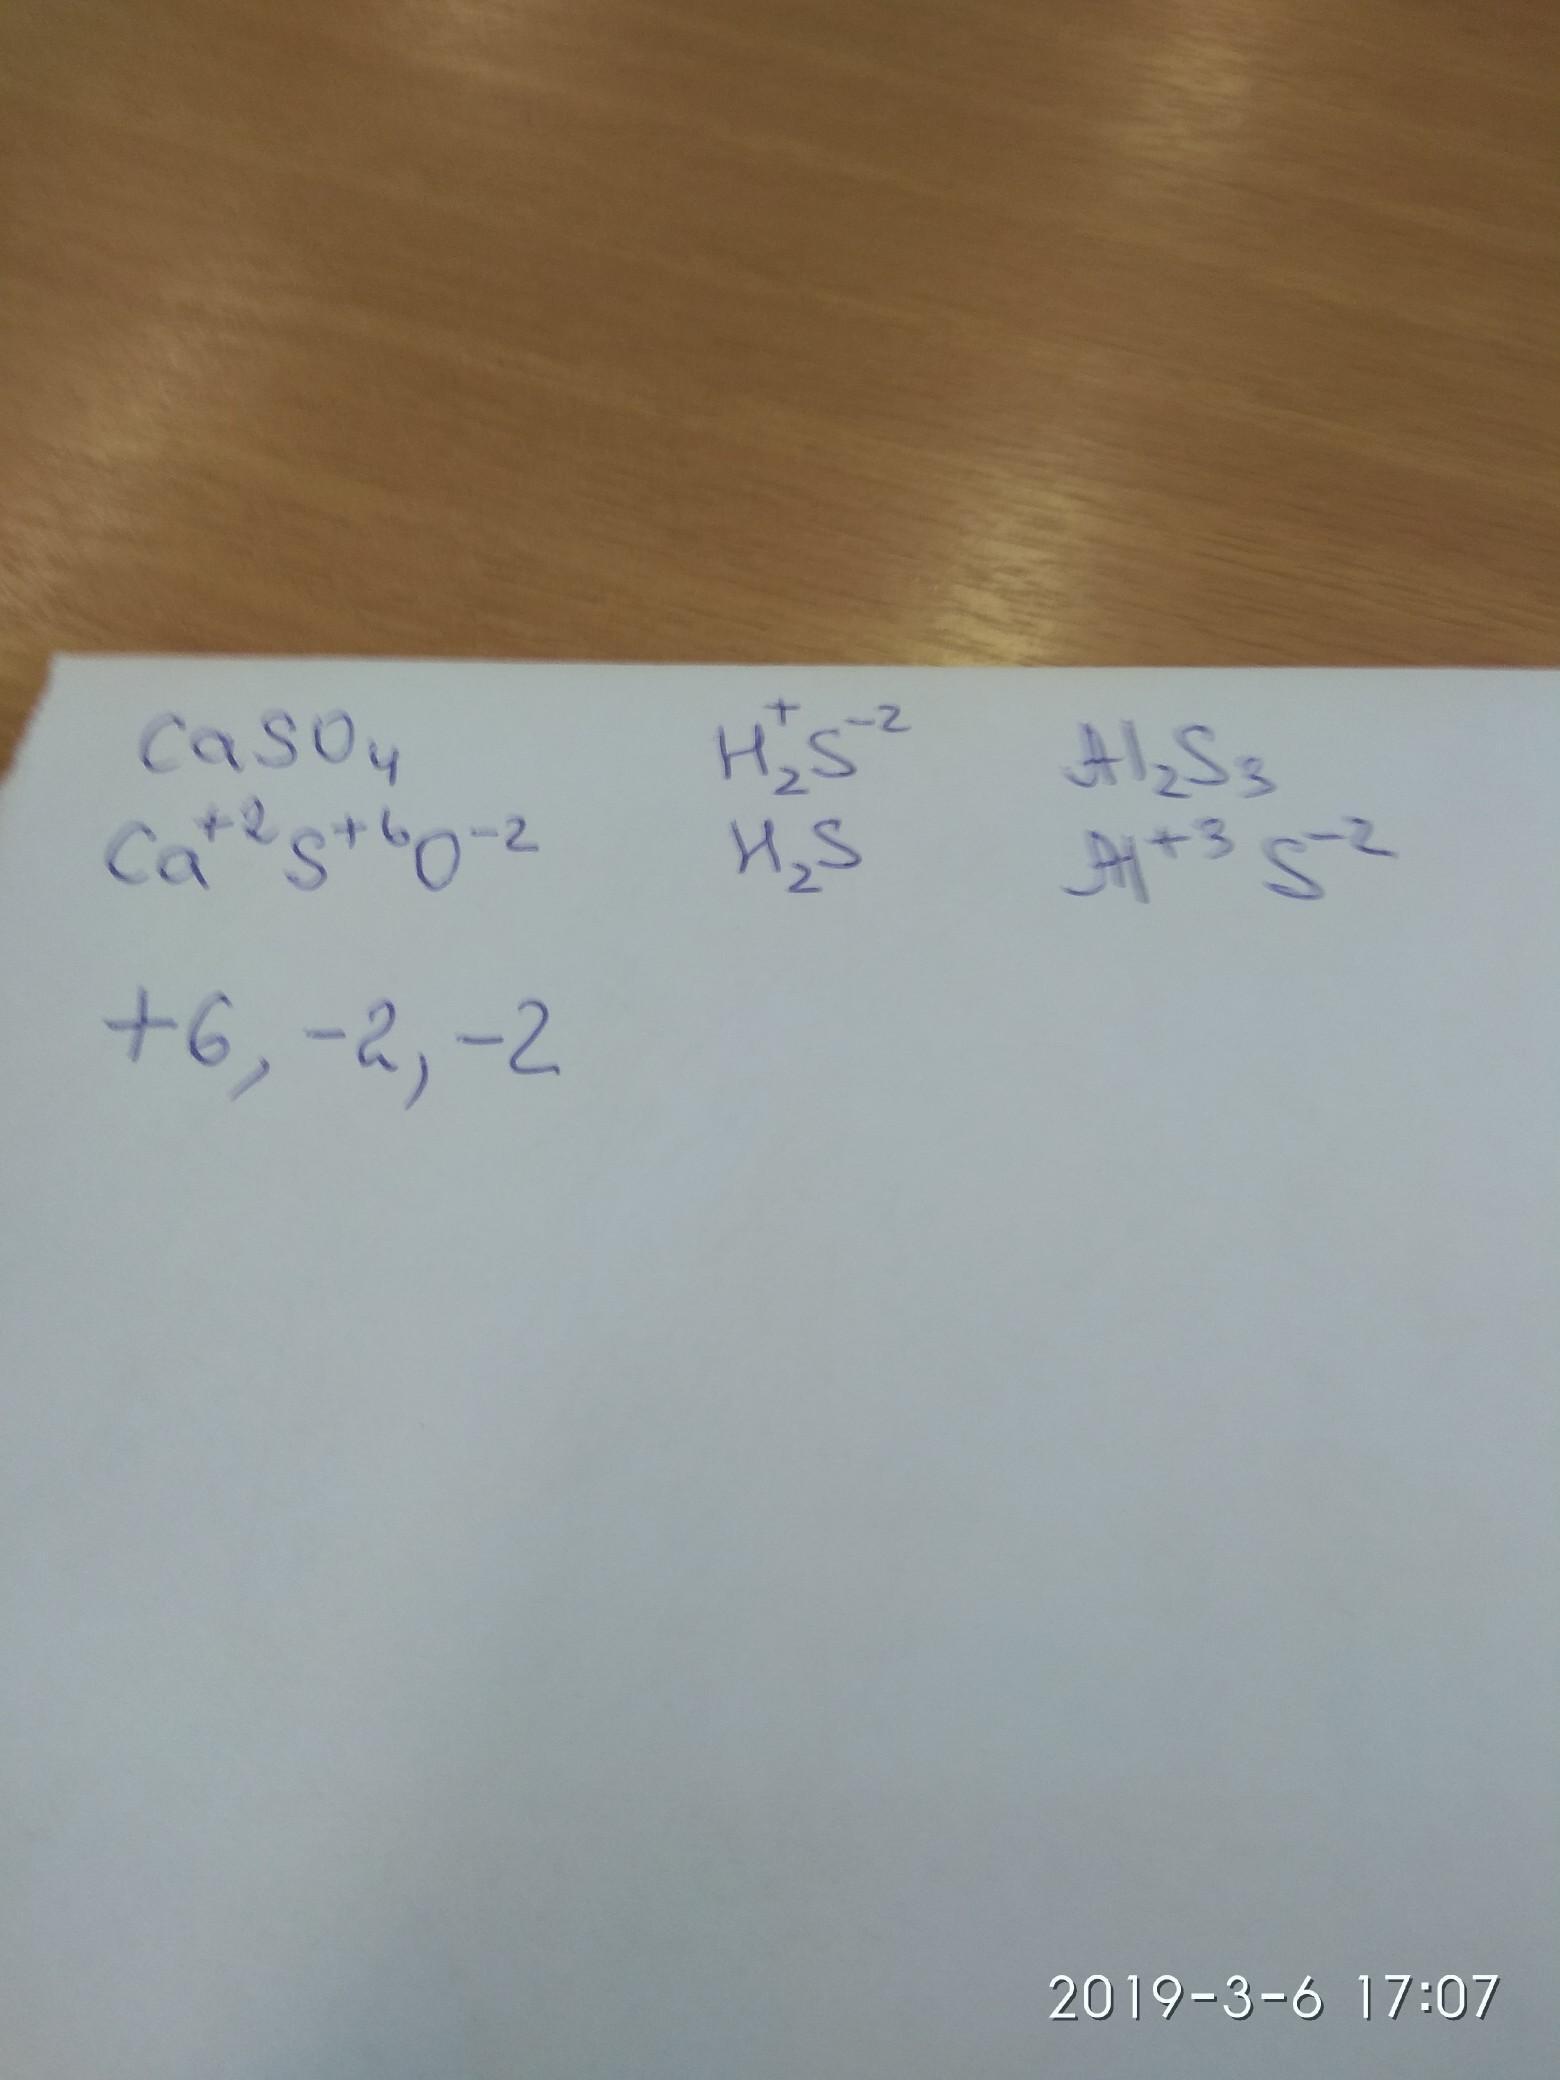 CaSO₄ H₂⁺S⁻² Al₂S₃
Ca⁺²S⁺⁶O⁻² H₂S Al⁺³ S⁻²
+6, -2, -2
2019-3-6 17:07